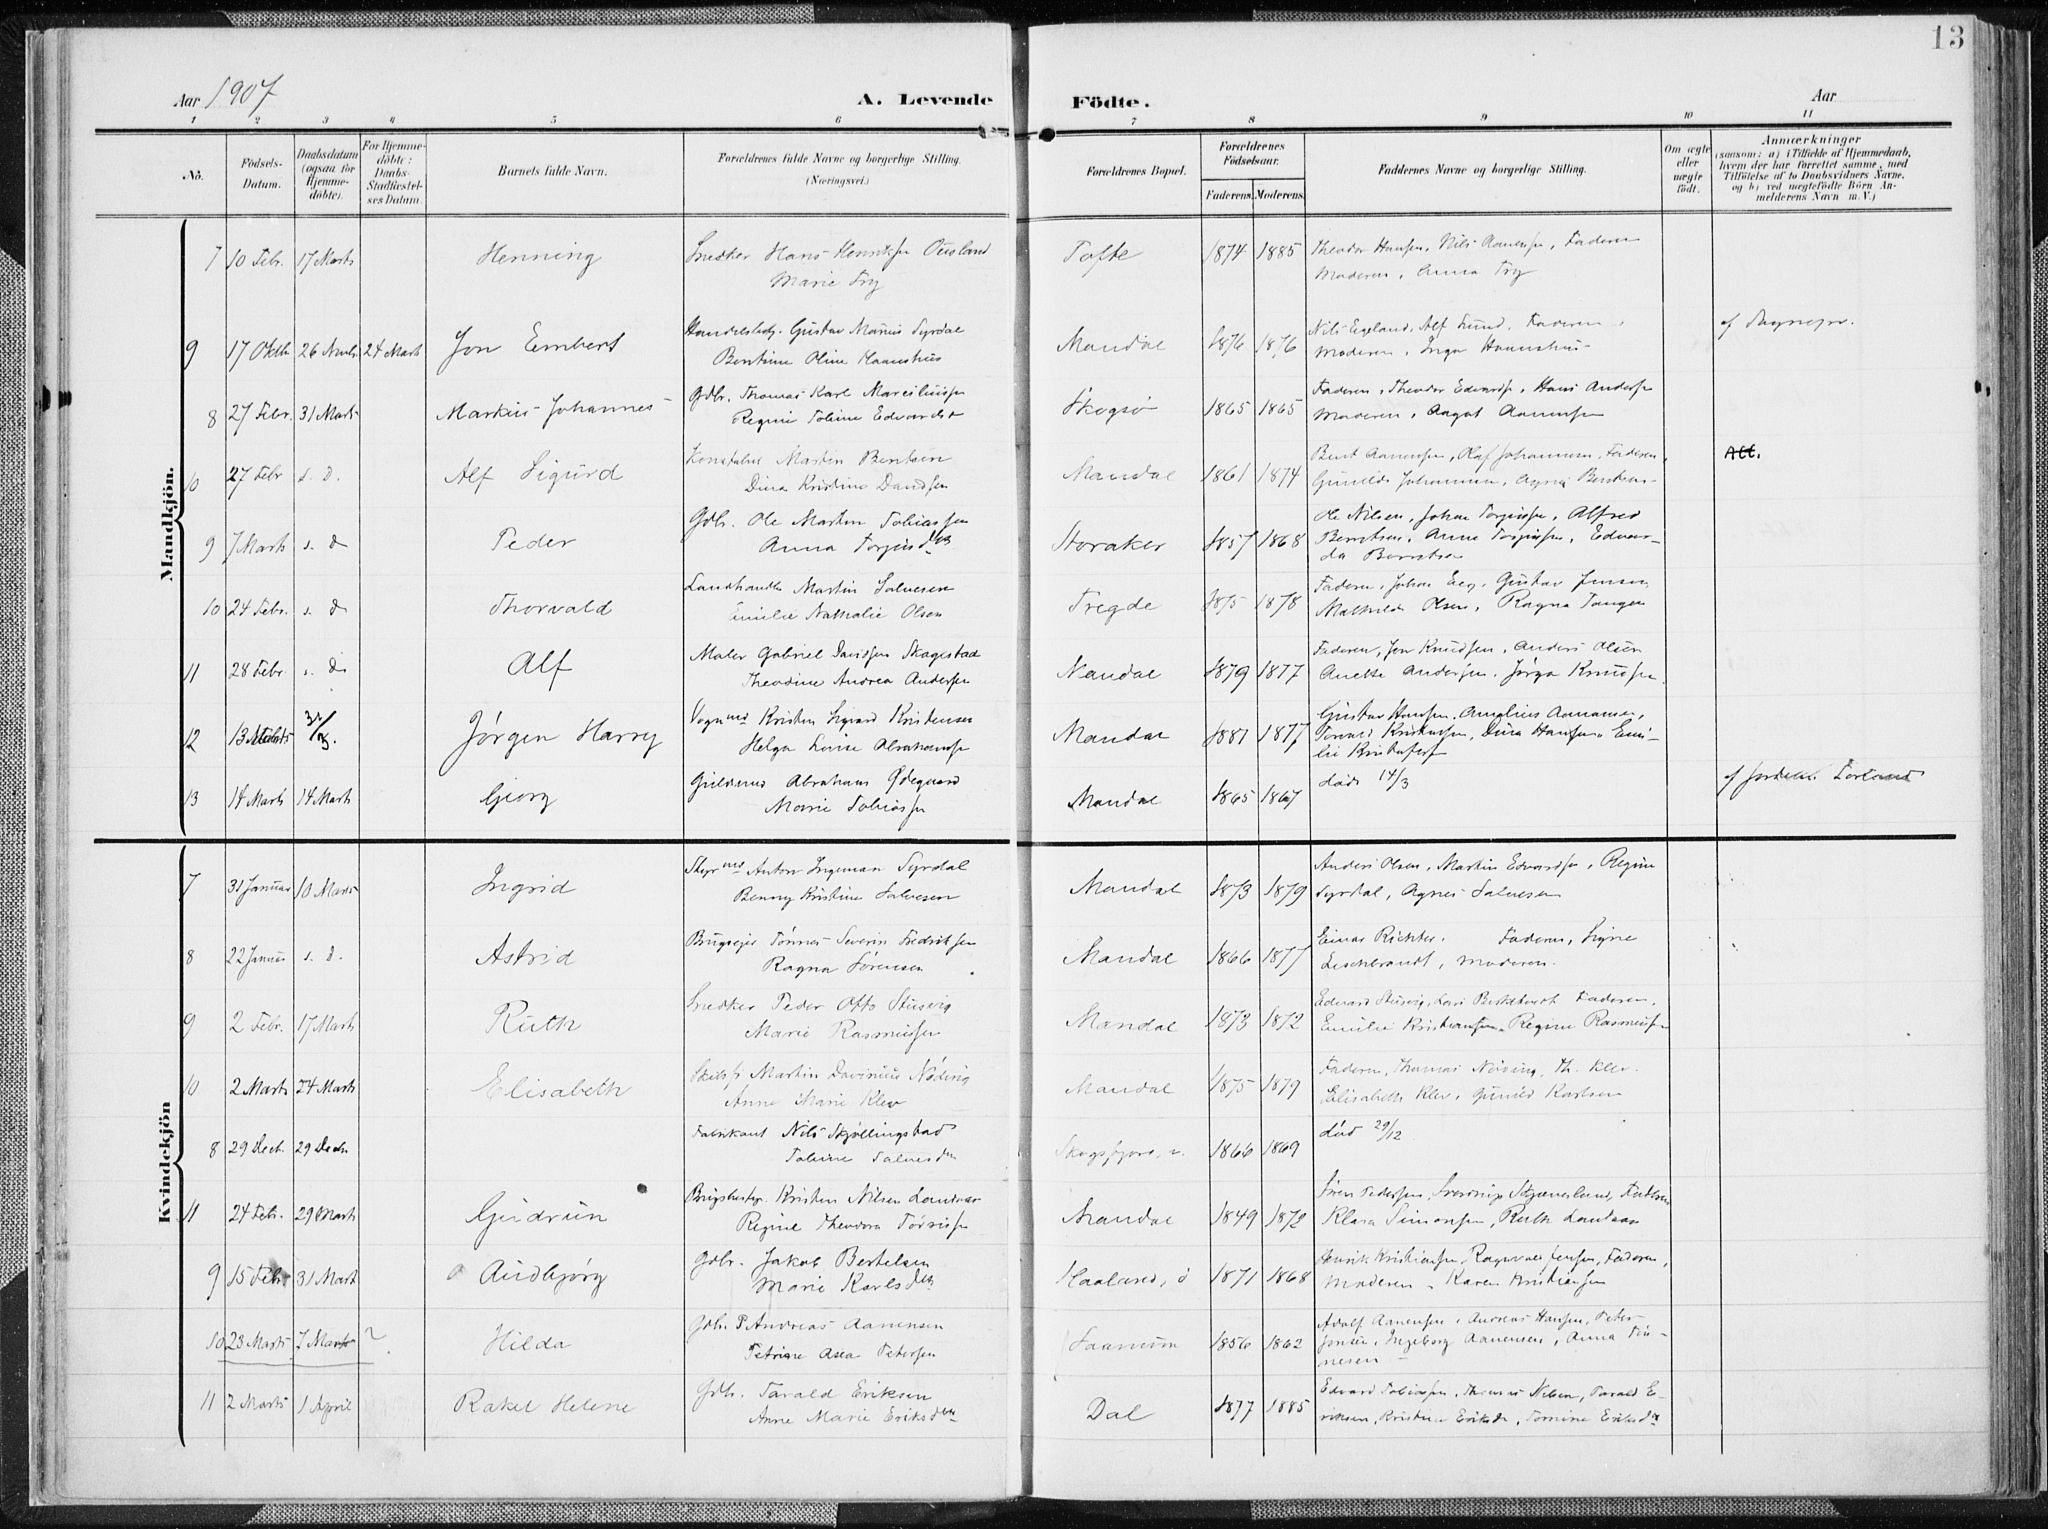 13
Aar 1907
A. Levende Födte.
Aar
1 2 3 4 5 6 7 8 9 10 11
No.
Födsels-Datum.
Daabsdatum (ogsaa for Hjemmedöbte).
For Hjemmedöbte: Daabs-Stadfæstelses Datum.
Barnets fulde Navn.
Forældrenes fulde Navne og borgerlige Stilling. (Næringsvei.)
Forældrenes Bopæl.
Forældrenes Födselsaar.
Faderens. Moderens.
Faddernes Navne og borgerlige Stilling.
Om ægte eller uægte födt.
Anmærkninger
(saasom: a) i Tilfælde af Hjemmedaab, hvem der har forrettet samme, med Tilföielse af to Daabsvidners Navne, og b) ved uægtefödte Börn Anmelderens Navn m. V.)
Mandkjön.
7 10 Febr. 17 Marts Henning Snedker Hans Henriksen Ousland Tofte 1874 1885 Theodor Hansen, Nils Aanensen, Faderen
Marie Try Moderen, Anna Try
9 17 Oktb 26 Novbr. 24 Mart Jon Embert Gustav Marius Syrdal Mandal 1876 1876 Nils Egeland, Alf Lund, Faderen,
Bentine Oline Moderen, Inga
8 27 Febr. 31 Marts Markus Johannes Gdbr. Thomas Karl Skogsö 1865 1865 Faderen, Theodor Edvardsen, Hans Andersen
Regine Tobine Edvardsdr Moderen, Aagot Aanensen
10 27 Febr s. d. Alf Sigurd Konstabel Martin Bentsen Mandal 1861 1874 Bent Aanensen, Olaf Johannesen, Faderen,
Dina Kristine Davidsen Gunilde Johannesen, Agnes Bentsen
9 7 Marts s. d Peder Gdbr. Ole Martin Tobiassen Storaker 1857 1868 Ole Nilsen, Johan, Alfred
Anna Berntsen, Anne, Edvar-
da Berntsen
10 24 Febr. s. d Thorvald Landhandler Martin Salvesen Tregde 1875 1878 Faderen, Johan Eeg, Gustav Jensen,
Emilie Nathalie Olsen Mathilde Olsen, Ragna Tangen
11 28 Febr. s. d Alf Maler Gabriel Davidsen Skagestad Mandal 1879 1877 Faderen, Jon Knudsen, Anders Olsen
Theodine Andrea Andersen Anette Andersen, Jørga Knudsen
12 13 Marts 31/3. Jørgen Harry Vognmd Kristen Sigvard Kristensen Mandal 1881 1877 Gustav Hansen, Aanensen,
Helga Lovise Abrahamsen Dina Hansen, Emi-
lie
13 14 Marts 14 Marts Georg Abraham Ødegaard Mandal 1865 1867 död 14/3
Marie Tobiassen
Kvindekjön
7 31 Januar 10 Marts Ingrid Styrmd Anton Ingeman Syrdal Mandal 1873 1879 Anders Olsen, Martin Edvardsen, Regine
Benny Kristine Salvesen Syrdal, Agnes Salvesen
8 22 Januar s. d. Astrid Brugseier Tönnes Severin Fredriksen Mandal 1866 1877 Einar Richter. Faderen, Signe
Ragna Sörensen Moderen.
9 2 Febr. 17 Marts Ruth Snedker Peder Otto Stusvig Mandal 1873 1872 Edvard Stusvig, Faderen,
Marie Rasmussen Emilie Kristiansen, Regine Rasmussen
10 2 Marts 24 Marts Elisabeth Martin Mandal 1875 1879 Faderen, Thomas, Th. Klev.
Anne Marie Klev Elisabeth Klev, Gunild Karlsen
8 29 Decb. 29 Decb Fabrikant Nils Skjöllingstad 1866 1869 död 29/12
Tobine
11 24 Febr. 29 Marts Gudrun Brugsbestyr. Kristen Nilsen Mandal 1849 1872 Sören Pedersen, Faderen
Regine Theodora Klara Simonsen, Ruth
9 15 Febr 31 Mart Audbjörg Gdbr. Jakob Bertelsen Haaland, ö 1871 1868 Henrik Kristiansen, Ragnvald Jensen, Faderen,
Marie Karlsdtr Moderen, Karen Kristiansen
10 23 Marts 7 Marts ? Hilda Gdbr. P Andreas Aanensen 1856 1862 Adolf Aanensen, Andreas Hansen, Peter
Petrine Asea Petersen Jensen, Ingeborg Aanensen, Anna
11 2 Marts 1 April Rakel Helene Gdbr. Tarald Eriksen Dal 1877 1885 Edvard Tobiassen, Thomas Nilsen, Tarald E-
Anne Marie Eriksdtr riksen, Kristine Eriksdr, Tomine Eriksdtr